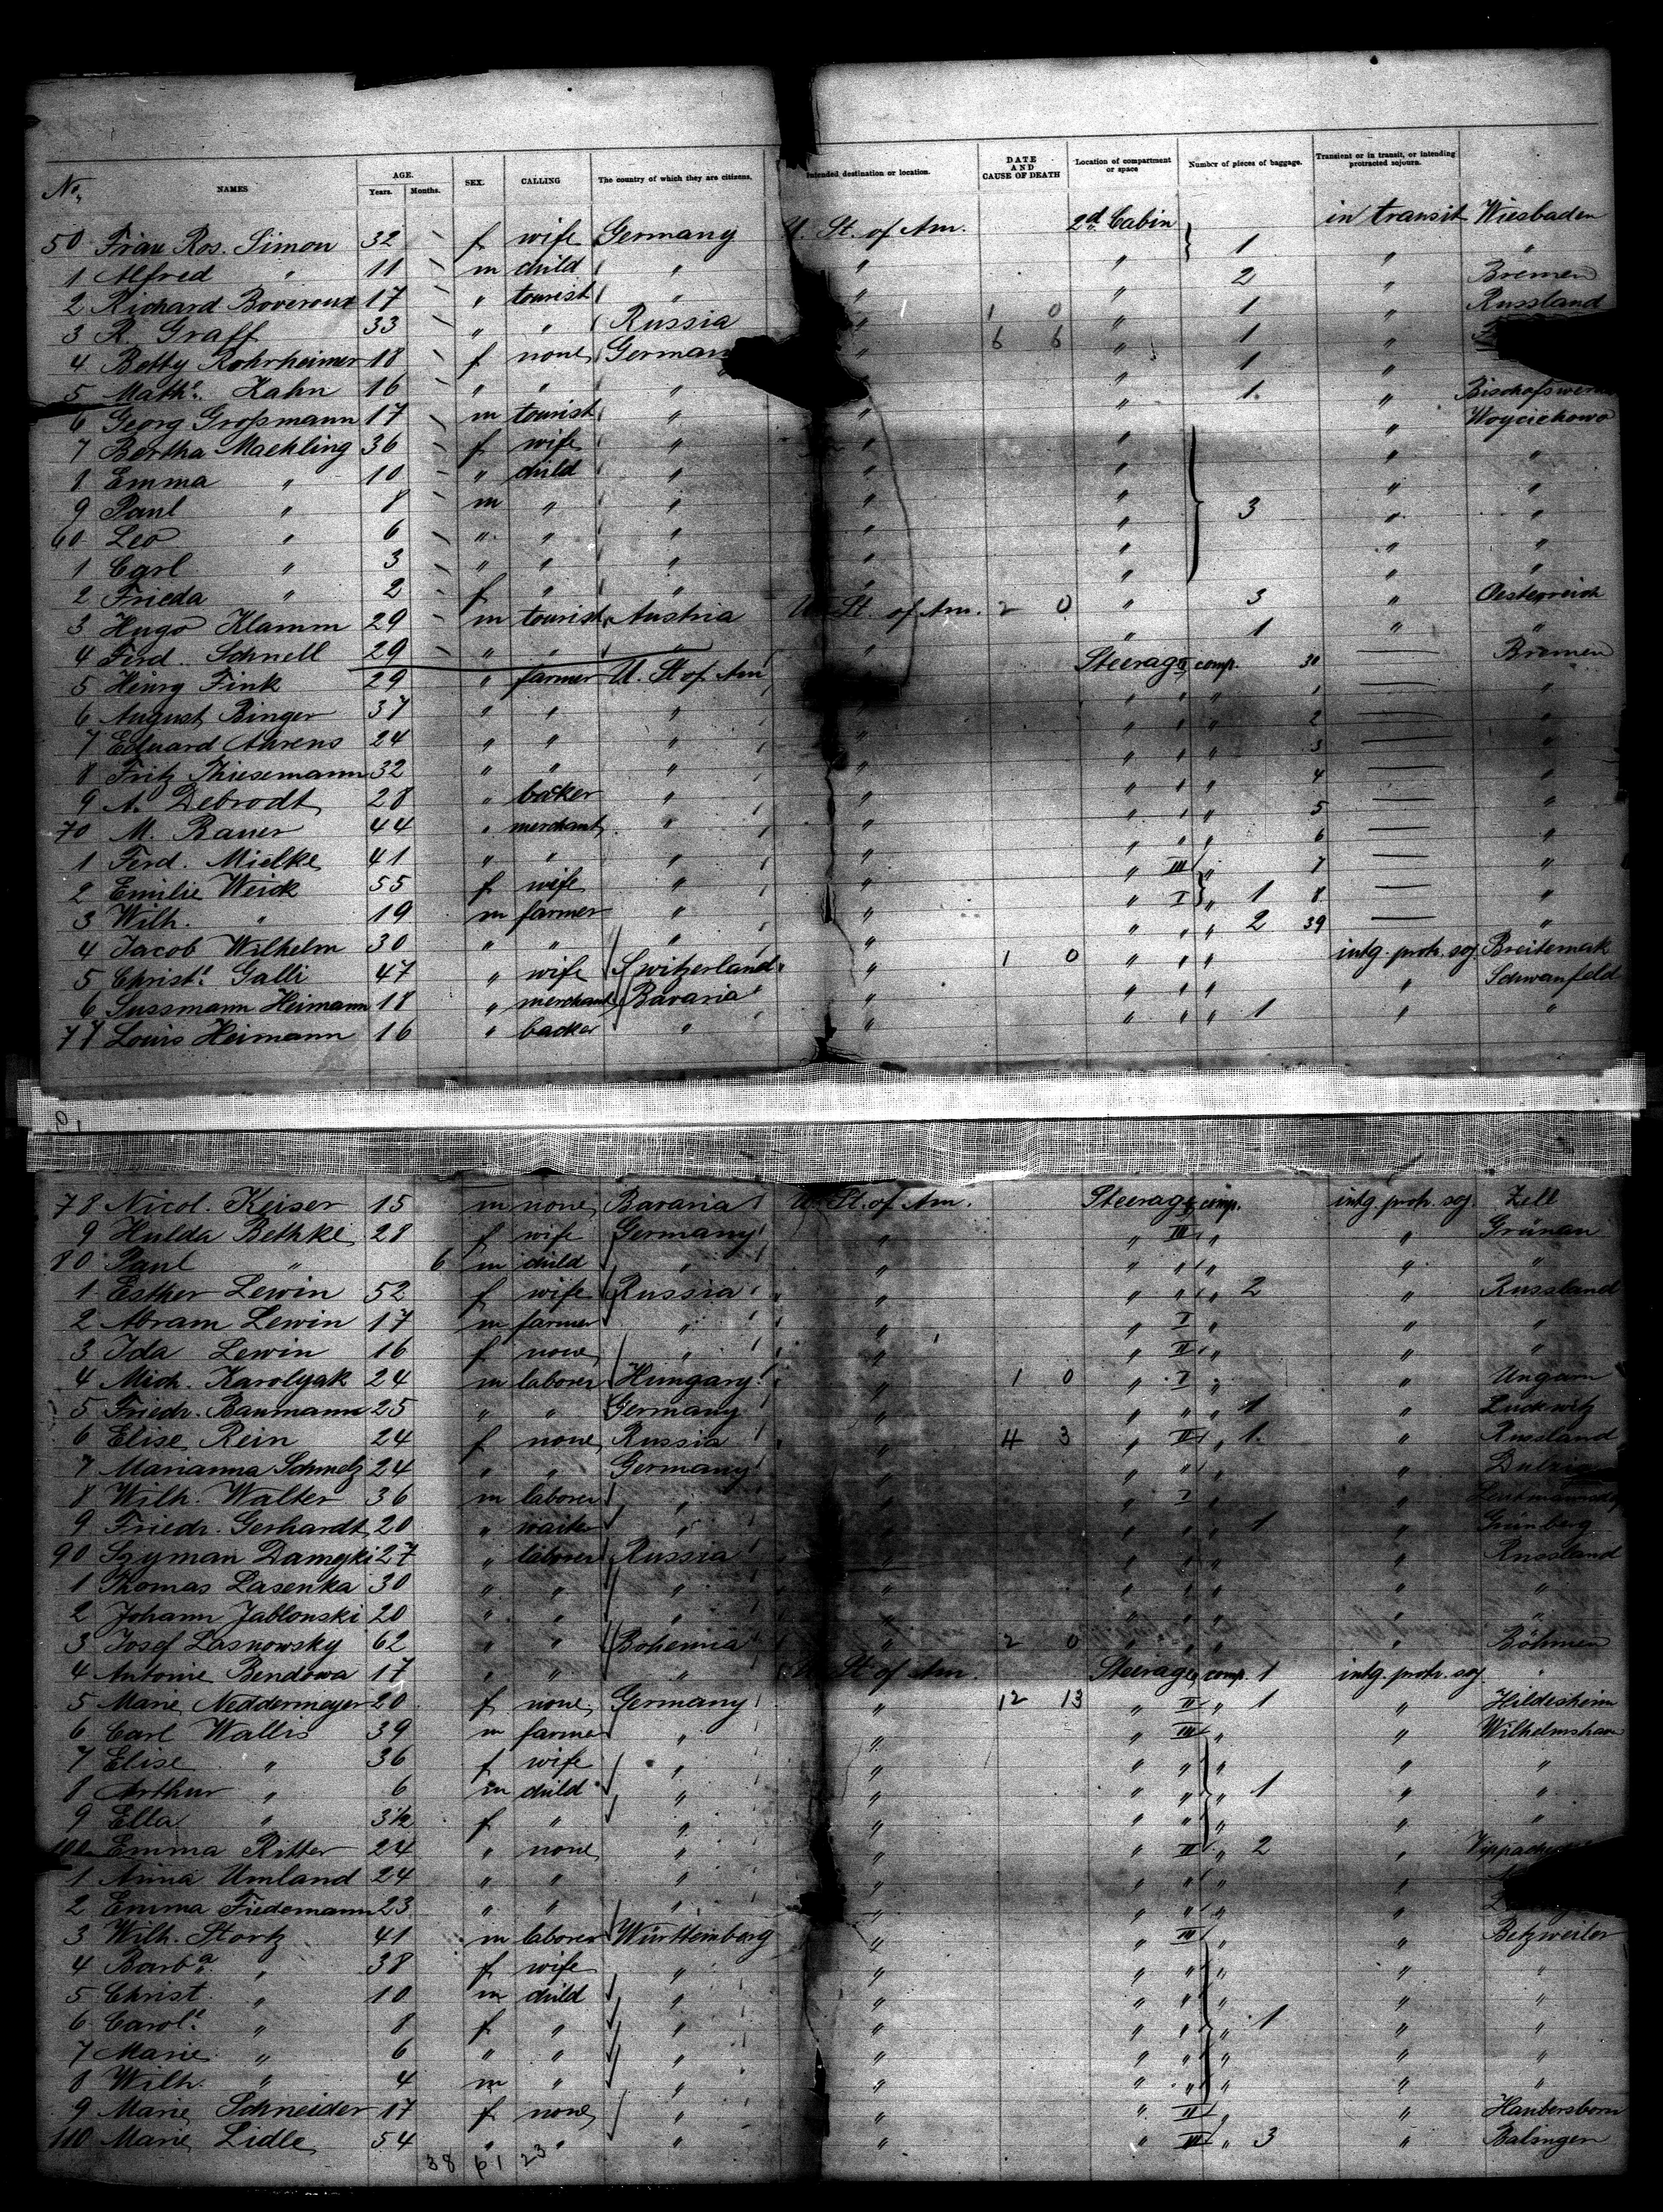 No. NAMES AGE. Years. Months. SEX. CALLING The country of which they are citizens. Intended destination or location. DATE AND CAUSE OF DEATH Location of compartment or space Number of pieces of baggage. Transient or in transit, or intending protracted sojourn.
50 Frau Ros. Simon 32 f wife Germany U. St. of Am. 2d Cabin 1 in transit Wiesbaden
1 Alfred " 11 m child " " " " "
2 Richard Boveroux 17 " tourist " " " 2 " Bremen
3 R. Graff 33 " " Russia " 1 0 " 1 " Russland
4 Betty Rohrheimer 18 f none Germany " 6 6 " 1 "
5 Mathe. Kahn 16 " " " " 1 "
6 Georg Großmann 17 m tourist " " " 1 " Bischofswerda
7 Bertha Maehling 36 f wife " " " " Woyciechowo
8 Emma " 10 " child " " " " "
9 Paul " 8 m " " " " " "
60 Leo " 6 " " " " " 3 " "
1 Carl " 3 " " " " " " "
2 Frieda " 2 f " " " " " "
3 Hugo Klamm 29 m tourist Austria U. St. of Am. 2 0 " 3 " Oesterreich
4 Ferd. Schnell 29 " " " " " 1 " "
5 Heinrg Fink 29 " farmer U. St of Am " Steerage comp. 30 — Bremen
6 August Binger 37 " " " " " " " 1 — "
7 Eduard Ahrens 24 " " " " " " " 2 — "
8 Fritz Thiesemann 32 " " " " " " " 3 — "
9 A. Debrodt 28 " backer " " " " " 4 — "
70 M. Bauer 44 " merchant " " " " " 5 — "
1 Ferd. Mielke 41 " " " " " " " 6 — "
2 Emilie Weick 55 f wife " " " III " 7 — "
3 Wilh. " 19 m farmer " " " I " 1 8 — "
4 Jacob Wilhelm 30 " " " " " " " 2 39 — "
5 Christe. Galli 47 " wife Switzerland " 1 0 " " " intg. protr. soj. Breitemak
6 Sussmann Heimann 18 " merchant Bavaria " " " " " Schwanfeld
77 Louis Heimann 16 " backer " " " " " 1 " "
78 Nicol. Keiser 15 m none Bavaria U. St. of Am. Steerage comp. intg. protr. soj. Zell
9 Hulda Bethke 28 f wife Germany " " III " " Grünau
80 Paul " 6 m child " " " " " " "
1 Esther Lewin 52 f wife Russia " " " " 2 " Russland
2 Abram Lewin 17 m farmer " " " I " " "
3 Ida Lewin 16 f none " " " II " " "
4 Mich. Karolyak 24 m laborer Hungary " 1 0 " I " " Ungarn
5 Friedr. Baumann 25 " " Germany " " " " 1 " Luckwitz
6 Elise Rein 24 f none Russia " 4 3 " II " 1 " Russland
7 Marianna Schmelz 24 " " Germany " " " "
8 Wilh. Walter 36 m laborer " " " I " "
9 Friedr. Gerhardt 20 " waiter " " " " " 1 " Grünberg
90 Szyman Damyki 27 " laborer Russia " " " " " Russland
1 Thomas Lasenka 30 " " " " " " " " "
2 Johann Jablonski 20 " " " " " " " " "
3 Josef Lasnowsky 62 " " Bohemia " 2 0 " " " " Böhmen
4 Antonie Bendowa 17 " " " U. St of Am. Steerage comp. 1 intg. protr. soj. "
5 Marie Neddermeyer 20 f none Germany " 12 13 " II " 1 " Hildesheim
6 Carl Wallis 39 m farmer " " " III " " Wilhelmshav
7 Elise " 36 f wife " " " " " " "
8 Arthur " 6 m child " " " " " 1 " "
9 Ella " 3½ f " " " " " " " "
100 Emma Ritter 24 " none " " " II " 2 "
1 Anna Umland 24 " " " " " " " "
2 Emma Fiedemann 23 " " " " " " " "
3 Wilh. Stortz 41 m laborer Württemberg " " III " " Betzweiler
4 Barba. " 38 f wife " " " " " " "
5 Christ. " 10 m child " " " " " " "
6 Carole. " 8 f " " " " " " 1 " "
7 Marie " 6 " " " " " " " " "
8 Wilh. " 4 m " " " " " " " "
9 Marie Schneider 17 f none " " " II " " Haubersbronn
110 Marie Lidle 54 " " " " " III " 3 " Balingen
38 61 23